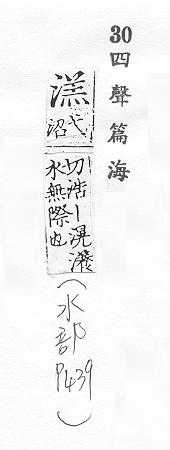 30四聲篇海
溔
弋
沼
切浩丨滉瀁
水無際也
(水部P439)